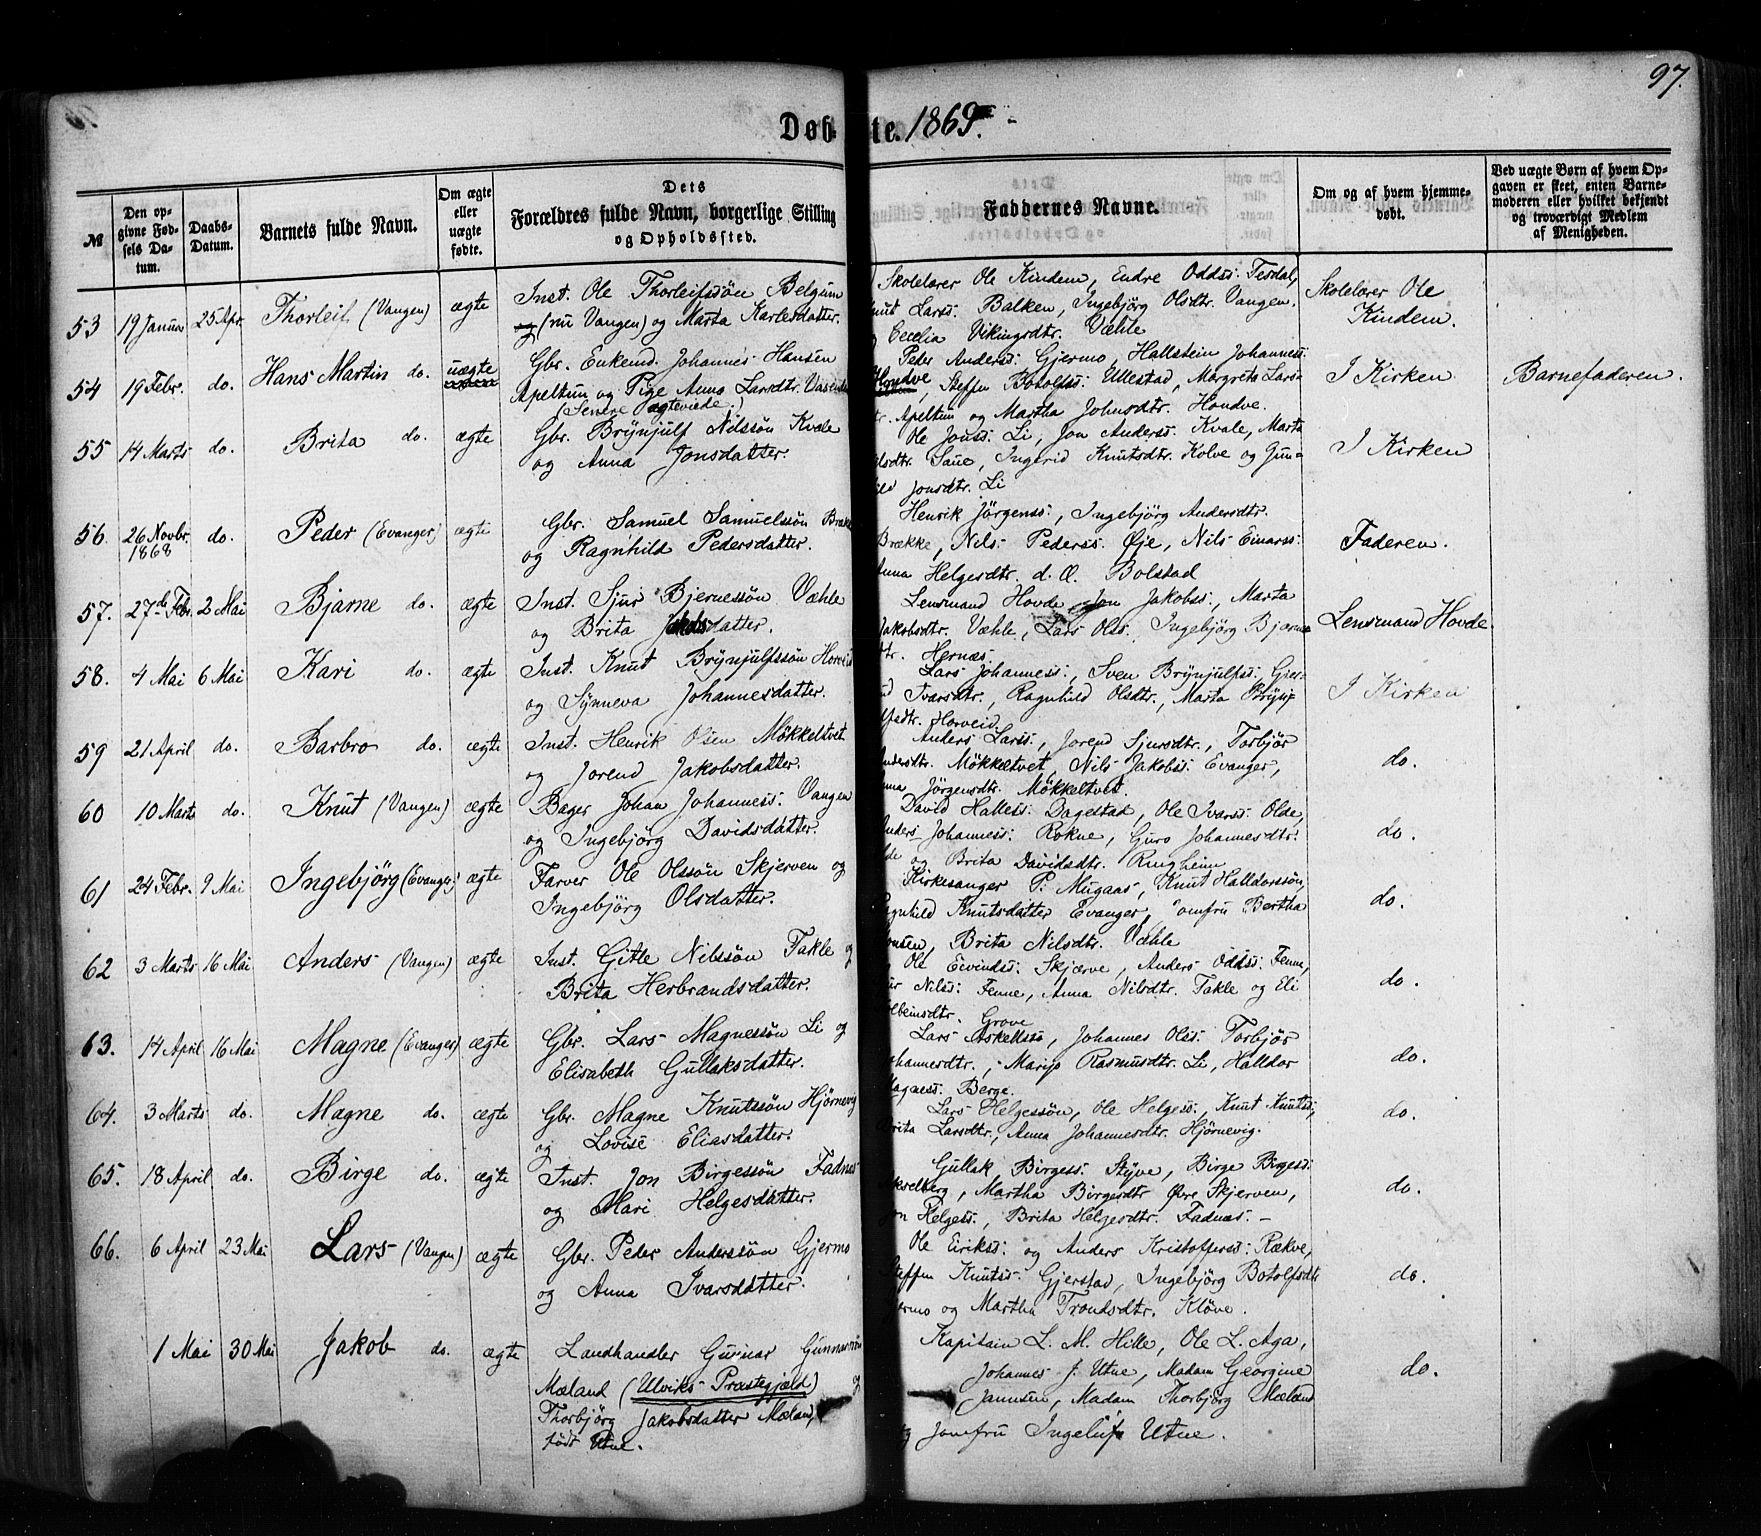 97.
Døbte. 1869.
№
Den opgivne Fødsels Datum.
Daabs-Datum.
Barnets fulde Navn.
Om ægte eller uægte fødte.
Dets Forældres fulde Navn, borgerlige Stilling og Opholdssted.
Faddernes Navne.
Om og af hvem hjemmedøbt.
Ved uægte Børn af hvem Opgaven er skeet, enten Barnemoderen eller hvilket bekjendt og troværdigt Medlem af Menigheden.
53 19 Januar 25 Apr. Thorleif (Vangen) ægte
Inst. Ole Thorleifssön Belgum
og (nu Vangen) og Marta Karlesdatter.
Skolelærer Ole Kindem, Endre Oddss: Tesdal,
Lars: Balken, Ingebjörg Olsdtr. Vangen.
Cecelia Vikingsdtr. Væhle
Skolelærer Ole
Kindem.
54 19 Febr. do. Hans Martin do. uægte
Gbr. Enkemd. Johannes Hansen
Apeltun og Pige Anna Larsdtr.
(Senere ægteviede.)
Peder Anderss: Gjermo, Hallstein Johanness:
Hondve, Steffen Botolfss: Ullestad, Margreta Lars-
Apeltun og Martha Johnsdtr. Hondve.
I Kirken
Barnefaderen.
55 14 Marts do. Brita do. ægte
Gbr. Brynjulf Nilssön Kvale
og Anna Jonsdatter.
Ole Jonss: Li, Jon Anderss: Kvale, Marta
Saue, Ingerid Knutsdtr. Kolve og Gun-
Jonsdtr. Li
I Kirken
56. 26 Novbr. 1868 do. Peder (Evanger) ægte
Gbr. Samuel Samuelssön
og Ragnhild Pedersdatter.
Henrik Jörgenss:, Ingebjörg Andersdtr.
Brække, Nils Pederss. Øje, Nils Einarss:
Helgesdtr. d. Æ. Bolstad
Faderen.
57. 27de Febr. 2 Mai Bjarne do. ægte
Inst. Sjur Bjernessön Væhle
og Brita Jakobsdatter.
Lensmand Hovde, Jon Jakobss:, Marta
Jakobsdtr. Væhle, Lars Olss. Ingebjörg Bjerne
Hernæs.
Lensmand Hovde.
58. 4 Mai 6 Mai Kari do. ægte
Inst. Knut Brynjulfssön Horveid
og Synneva Johannesdatter.
Lars Johanness:, Sven Brynjulfss:,
Ivarsdtr., Ragnhild Olsdtr., Marta
Horveid.
I Kirken
59 21 April do. Barbro do. ægte
Inst. Henrik Olsen Mökkeltvet
og Jorend Jakobsdatter.
Anders Larss:, Jorend Sjursdtr., Torbjör
Mökkeltvet, Nils Jakobss: Evanger,
Jörgensdtr. Mökkeltvet.
do.
60 10 Marts do. Knut (Vangen) ægte
Bager Johan Johanness. Vangen
og Ingebjörg Davidsdatter.
David Halless: Dagestad, Ole Ivarss: Olde,
Anders Johanness: Rokne, Guro Johannesdtr.
og Brita Davidsdtr. Ringheim
do.
61 24 Febr. 9 Mai Ingebjörg (Evanger) ægte
Farver Ole Olssön Skjerven og
Ingebjörg Olsdatter.
Kirkesanger P. Mugaas, Knut Halldorssön,
Ragnhild Knutsdatter Evanger, Jomfru Bertha
Brita Nilsdtr. Væhle
do.
62 3 Marts 16 Mai Anders (Vangen) ægte
Inst. Gitle Nilssön Takle og
Brita Herbrandsdatter.
Ole Eivindss: Skjærve, Anders Oddss: Fenne,
Nilss: Fenne, Anna Nilsdtr. Takle og Eli
Grove
do.
63. 14 April 16 Mai Magne (Evanger) ægte
Gbr. Lars Magnessön Li og
Elisabeth Gullaksdatter.
Lars Askelless, Johannes Olss: Torbjör
Johannesdtr., Rasmusdtr. Li, Halldor
Magness: Berge.
do.
64. 3 Marts do. Magne do. ægte
Gbr. Magne Knutssön Hjörnevig
og Lovise Eliasdatter.
Lars Helgessön, Ole Helgess:, Knut Knutss:,
Brita Larsdtr., Anna Johannesdtr. Hjörnevig.
do.
65. 18 April do. Birge do. ægte
Inst. Jon Birgessön Fadnes
og Mari Helgesdatter.
Gullak Birgess: Styve, Birge Birgess:
Martha Birgesdtr Övre Skjerven,
Helgess., Brita Helgesdtr. Fadnæs. –
do.
66. 6 April 23 Mai Lars (Vangen) ægte
Gbr. Peder Anderssön Gjermo
og Anna Ivarsdatter.
Ole Eirikss: og Anders Kristofferss: Rækve,
Steffen Knutss: Gjerstad, Ingebjörg Botolfsdtr
og Martha Trondsdtr. Klöve.
do.
1 Mai 30 Mai Jakob do. ægte
Landhandler Gunnar Gunnarssön
Mæland (Ulviks Præstegjæld)
Thorbjörg Jakobsdatter Mæland,
födt Utne.
Kapitain L. M. Hille, Ole L. Aga,
Johannes J. Utne, Madam Georgine
Jannsen, Madam Thorbjörg Mæland
og Jomfru Ingeleif Utne.
do.